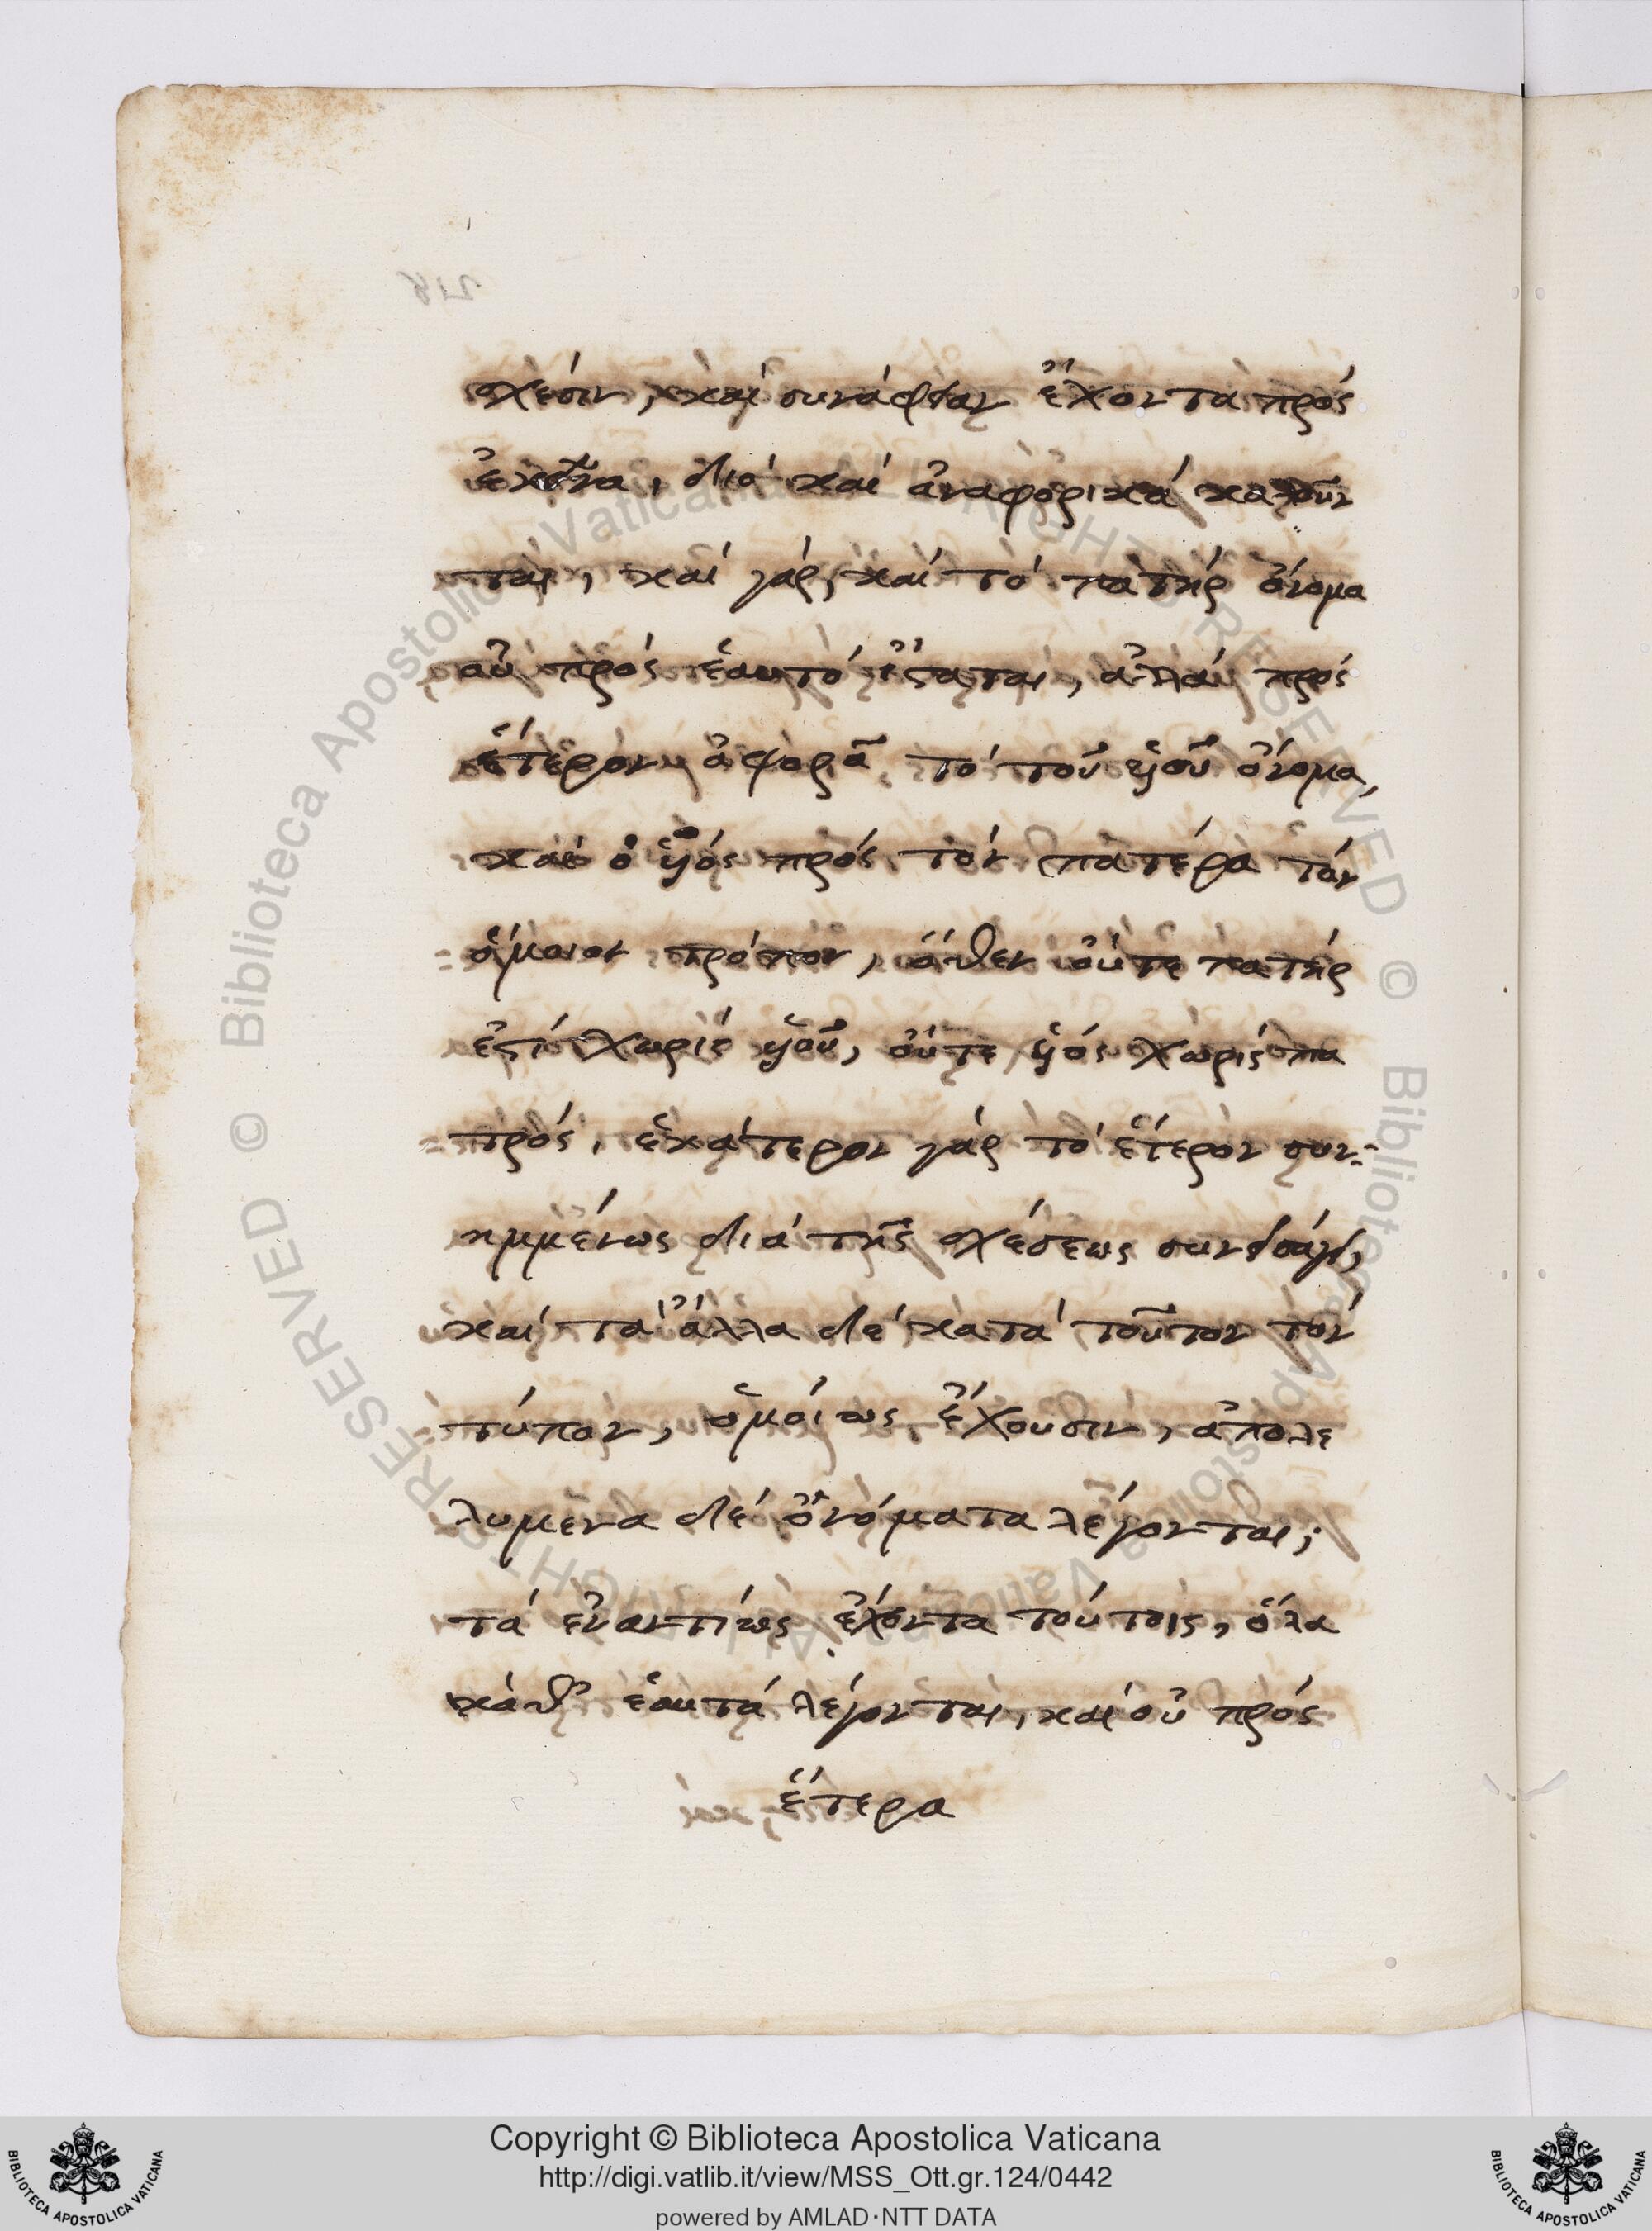 σχέσιν, καὶ συνάφειαν ἔχοντα πρός
ἐκεῖνα, διὰ καὶ ἀναφορικά καλοῦν
ται, καὶ γάρ, καὶ τὸ πατήρ ὄνομα
οὐ πρός ἑαυτό ἵσταται, ἀλλά πρός
ἕτερον ἀφορᾶ τὸ τοῦ υἱοῦ ὄνομα,
καὶ ὁ υἱός πρός τόν πατέρα τόν
ὅμοιον τρόπον, ὅθεν οὔτε πατήρ
ἐστί χωρίς υἱοῦ, οὔτε υἱός χωρίς πα
τρός, ἑκάτερον γάρ τὸ ἕτερον συν
ημμένως διά τῆς σχέσεως συνεισάγει,
καὶ τά ἄλλα δέ κατά τοῦτον τόν
τύπον, ὁμοίως ἔχουσιν, ἀπολε
λυμένα δέ ὀνόματα λέγονται,
τά ἐναντίως ἔχοντα τούτοις, ὅλα
καθ' ἑαυτά λέγονται, καὶ οὐ πρός
ἕτερα
218
Copyright © Biblioteca Apostolica Vaticana
http://digi.vatlib.it/view/MSS_Ott.gr.124/0442
powered by AMLAD·NTT DATA
BIBLIOTECA APOSTOLICA VATICANA
BIBLIOTECA APOSTOLICA VATICANA